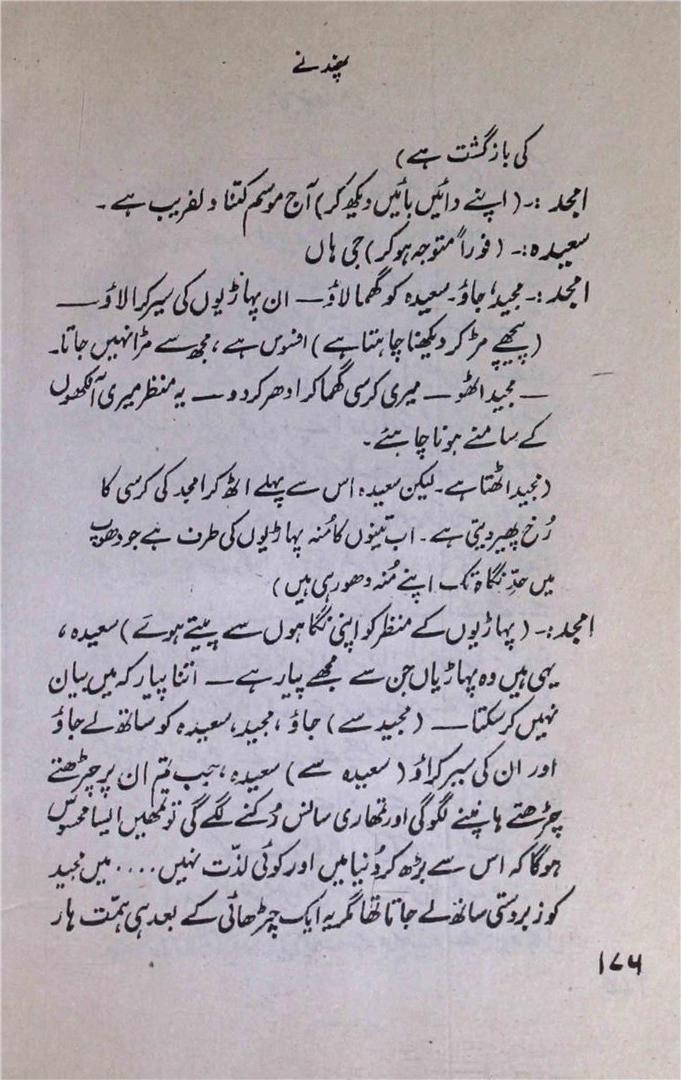 پھندنے
کی بازگشت ہے)
امجد :۔ (اپنے دائیں بائیں دیکھ کر) آج موسم کتنا دلفریب ہے۔
سعیدہ :۔ (فوراً متوجہ ہوکر) جی ہاں
امجد :۔ مجید، جاؤ۔ سعیدہ کو گھما لاؤ— ان پہاڑیوں کی سیر کرا لاؤ—
(پیچھے مڑ کر دیکھنا چاہتا ہے) افسوس ہے، مجھ سے مڑا نہیں جاتا۔
— مجید اٹھو — میری کرسی گھما کر ادھر کر دو — یہ منظر میری آنکھوں
کے سامنے ہونا چاہئے۔
(مجید اٹھتا ہے۔ لیکن سعیدہ اس سے پہلے اٹھ کر امجد کی کرسی کا
رُخ پھیر دیتی ہے۔ اب تینوں کا مُنہ پہاڑیوں کی طرف ہے جو دھوپ
میں حدِ نگاہ تک اپنے مُنہ دھو رہی ہیں)
امجد :۔ (پہاڑیوں کے منظر کو اپنی نگاہوں سے پیتے ہوئے) سعیدہ،
یہی ہیں وہ پہاڑیاں جن سے مجھے پیار ہے — اتنا پیار کہ میں بیان
نہیں کر سکتا — (مجید سے) جاؤ، مجید، سعیدہ کو ساتھ لے جاؤ
اور ان کی سیر کراؤ (سعیدہ سے) سعیدہ، جب تم ان پر چڑھتے
چڑھتے ہانپنے لگو گی اور تمھاری سانس رُکنے لگے گی تو تمھیں ایسا محسوس
ہوگا کہ اس سے بڑھ کر دُنیا میں اور کوئی لذّت نہیں .... میں مجید
کو زبردستی ساتھ لے جاتا تھا مگر یہ ایک چڑھائی کے بعد ہی ہمّت ہار
۱۷۶